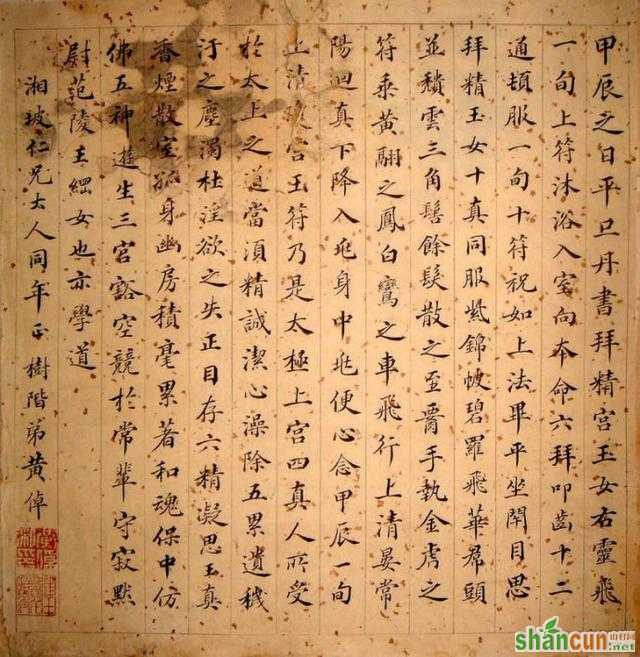 甲辰之日平旦丹書拜精宮玉女右靈飛
一旬上符沐浴入室向本命六拜叩齒十二
通頓服一旬十符祝如上法畢平坐閉目思
拜精玉女十真同服紫錦帔碧羅飛華帬頭
並穨雲三角髻餘髮散之至要手執金虎之
符乘黃翮之鳳白鸞之車飛行上清晏常
陽迴真下降入兆身中兆便心念甲辰一旬
上清瓊宮玉符乃是太極上宮四真人所受
於太上之道當須精誠潔心澡除五累遺穢
汙之塵濁杜淫欲之失正目存六精凝思玉真
香煙散室孤身幽房積毫累著和魂保中仿
佛五神遊生三宮豁空競於常輩守寂默
尉范陵王綱女也亦學道
湘坡仁兄大人同年正 樹階弟黃倬
shancun
山村网
.net